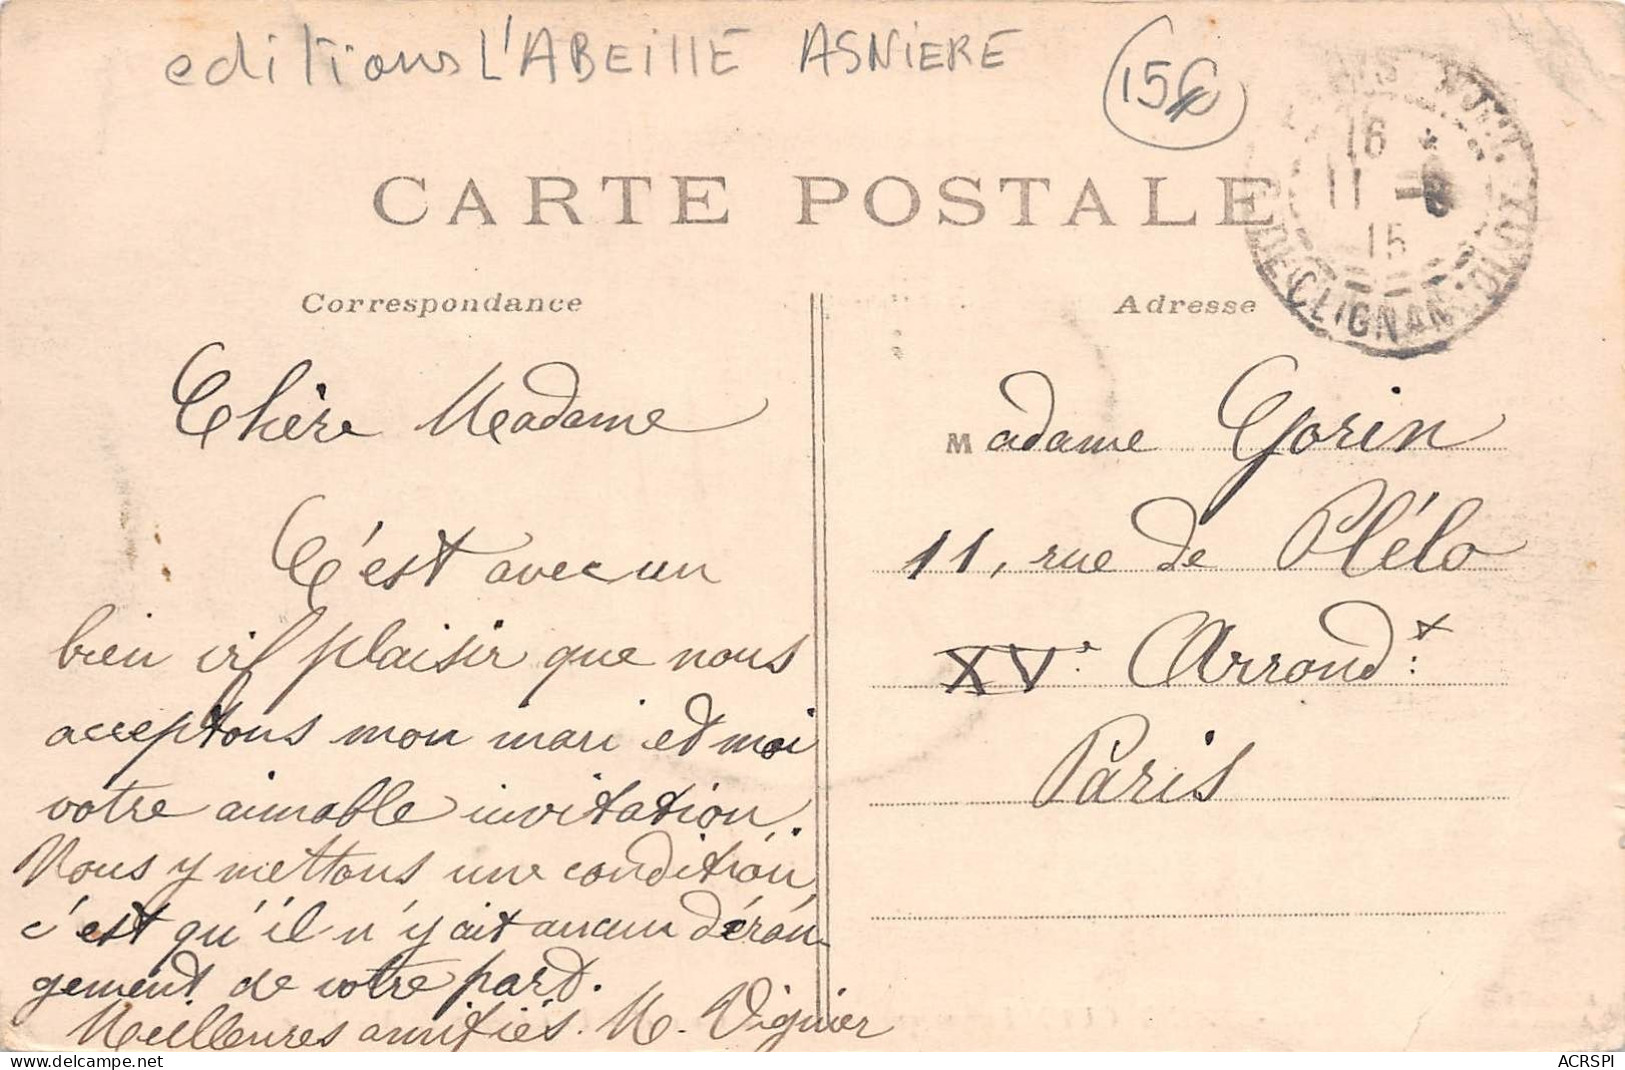 editions L'ABEILLE ASNIERE
15€
CARTE POSTALE
16 *
11 -
15
DE CLIGNAN
Correspondance
Adresse
Chère Madame
C'est avec un
bien vif plaisir que nous
acceptons mon mari et moi
votre aimable invitation.
Nous y mettons une condition,
c'est qu'il n'y ait aucun déran-
gement de votre part.
Meilleures amitiés. M. Vignier
Madame Gorin
11, rue de Plélo
XVe Arrondt
Paris
ACRSPI